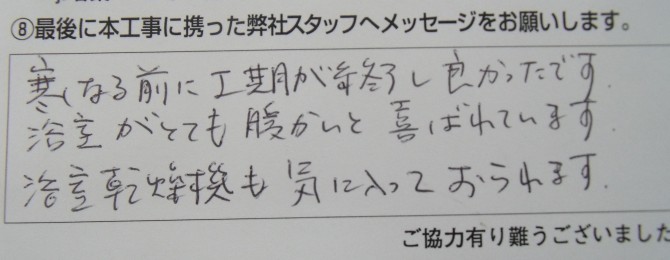 ⑧最後に本工事に携った弊社スタッフへメッセージをお願いします。
寒くなる前に工期が終了し良かったです.
浴室がとても暖かいと喜ばれています.
浴室乾燥機も気に入っておられます.
ご協力有り難うございました